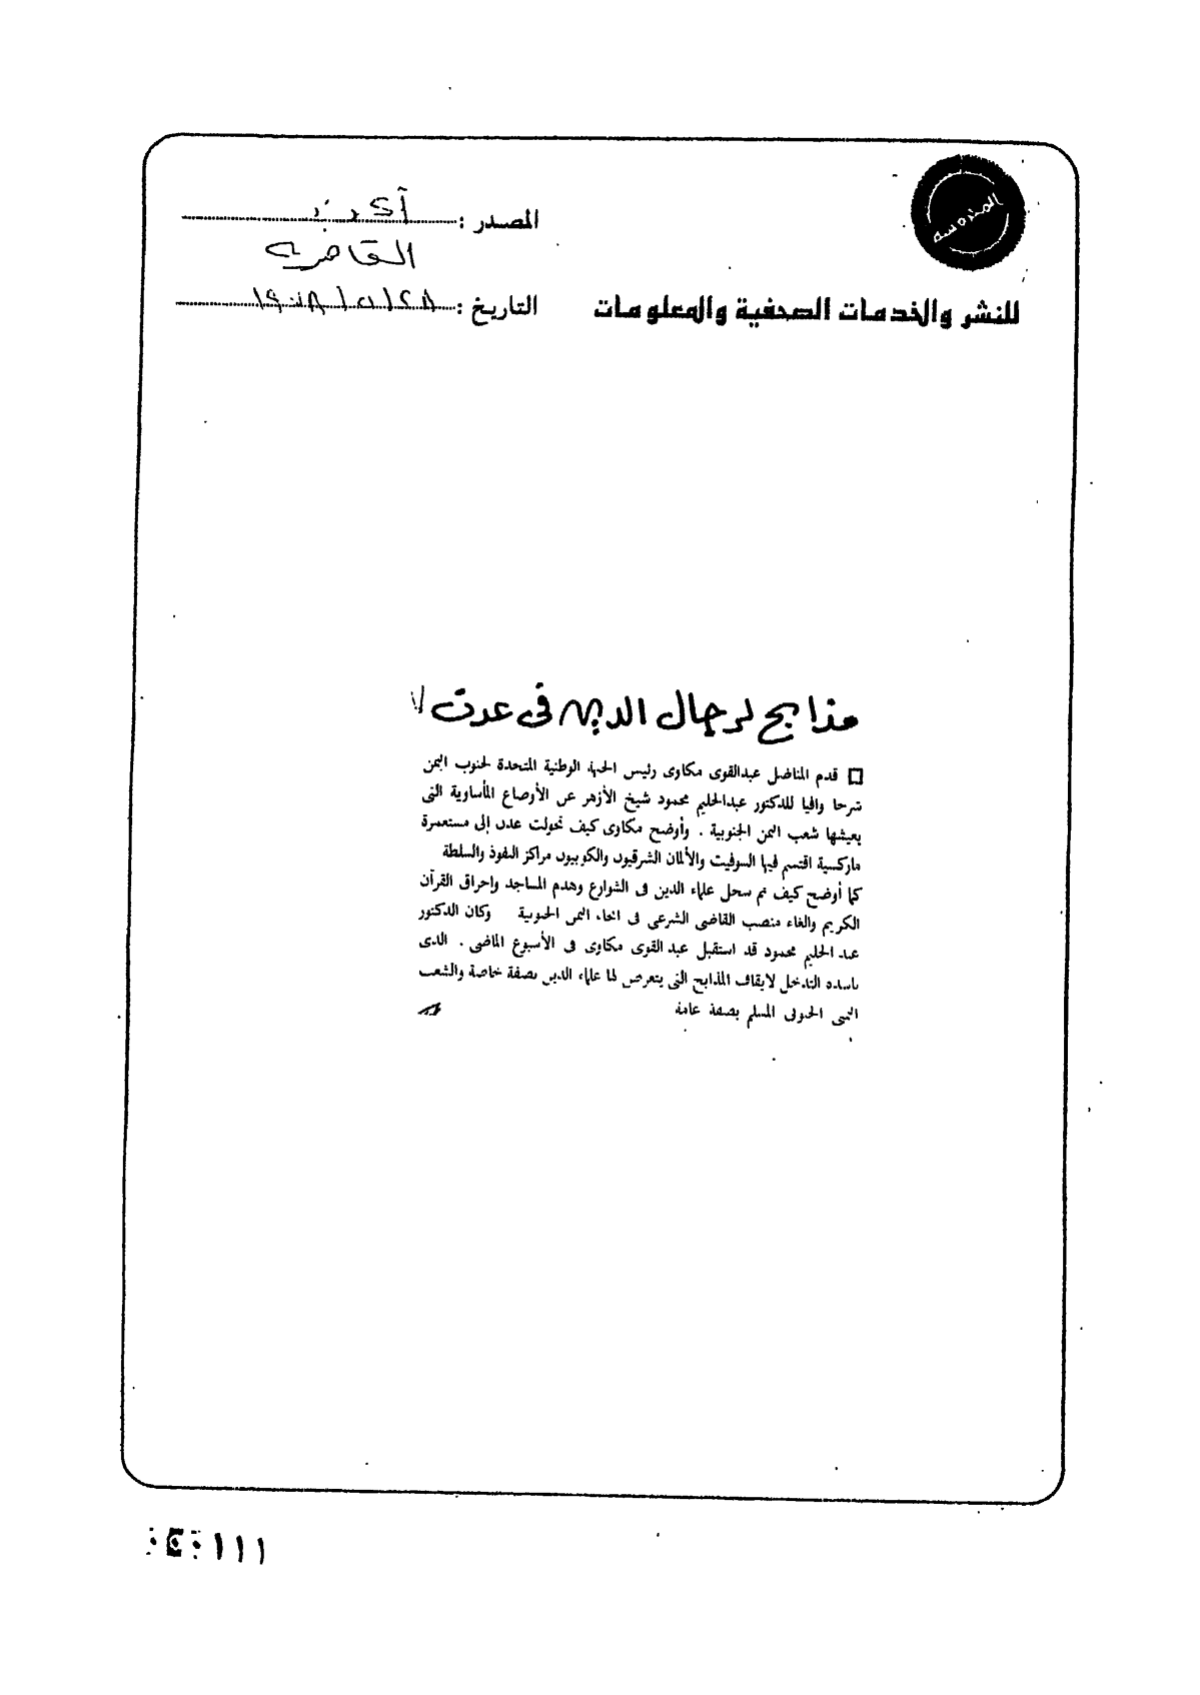 المصدر :
القاهرة
التاريخ :
للنشر والخدمات الصحفية والمعلومات
مذابح لرجال الدين فى عدن !!
قدم المناضل عبدالقوى مكاوى رئيس الجبهة الوطنية المتحدة لجنوب اليمن
شرحا وافيا للدكتور عبدالحليم محمود شيخ الأزهر عن الأوضاع المأساوية التى
يعيشها شعب اليمن الجنوبية . وأوضح مكاوى كيف تحولت عدن إلى مستعمرة
ماركسية اقتسم فيها السوفيت والألمان الشرقيون والكوبيون مراكز النفوذ والسلطة
كما أوضح كيف تم سحل علماء الدين فى الشوارع وهدم المساجد وإحراق القرآن
الكريم والغاء منصب القاضى الشرعى فى انحاء اليمن الجنوبية وكان الدكتور
عبد الحليم محمود قد استقبل عبد القوى مكاوى فى الأسبوع الماضى . الذى
ناشده التدخل لايقاف المذابح التى يتعرض لها علماء الدين بصفة خاصة والشعب
اليمنى الجنوبى المسلم بصفة عامة